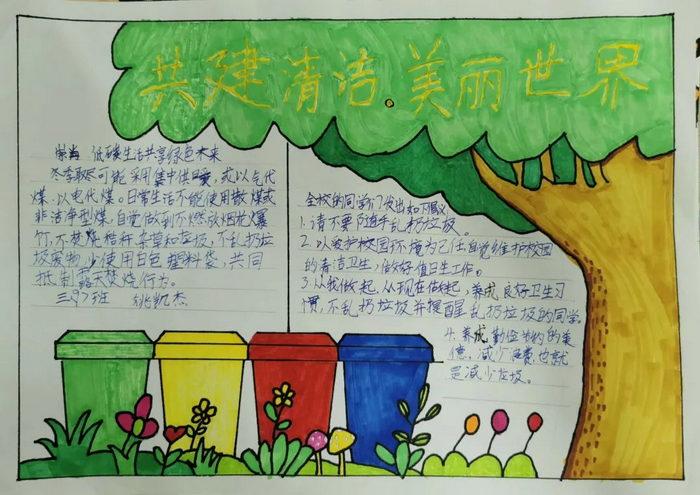 共建清洁.美丽世界
崇尚 低碳生活共享绿色未来
冬季取尽可能采用集中供暖,或以气代
煤、以电代煤。日常生活不能使用散煤或
非洁净型煤,自觉做到不燃放烟花爆
竹,不焚烧秸秆、杂草和垃圾,不乱扔垃
圾废物,少使用白色塑料袋,共同
抵制露天焚烧行为。
三97班 姚凯杰
全校的同学们发出如下倡议
1.请不要随手乱扔垃圾。
2.以爱护校园环境为己任,自觉维护校园
的清洁卫生,做好值日生工作。
3.从我做起,从现在做起,养成良好卫生习
惯,不乱扔垃圾并提醒乱扔垃圾的同学。
4.养成勤俭节约的美
德,减少浪费,也就
是减少垃圾。